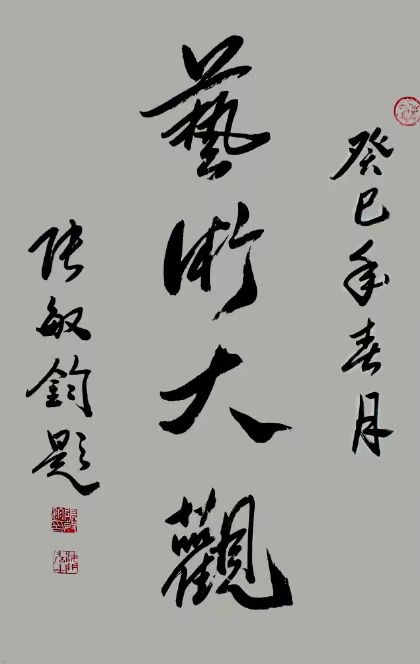 癸巳年春月
藝術大觀
张敏鈞題